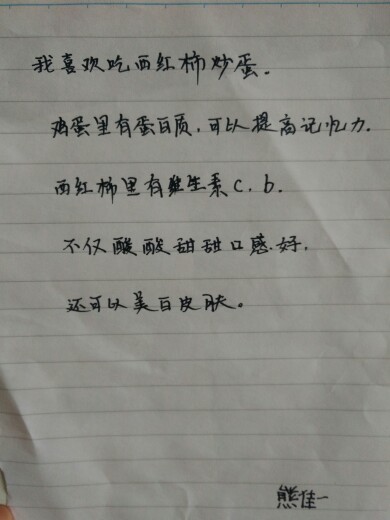 我喜欢吃西红柿炒蛋。
鸡蛋里有蛋白质,可以提高记忆力.
西红柿里有维生素c.b.
不仅酸酸甜甜口感好,
还可以美白皮肤。
熊佳一